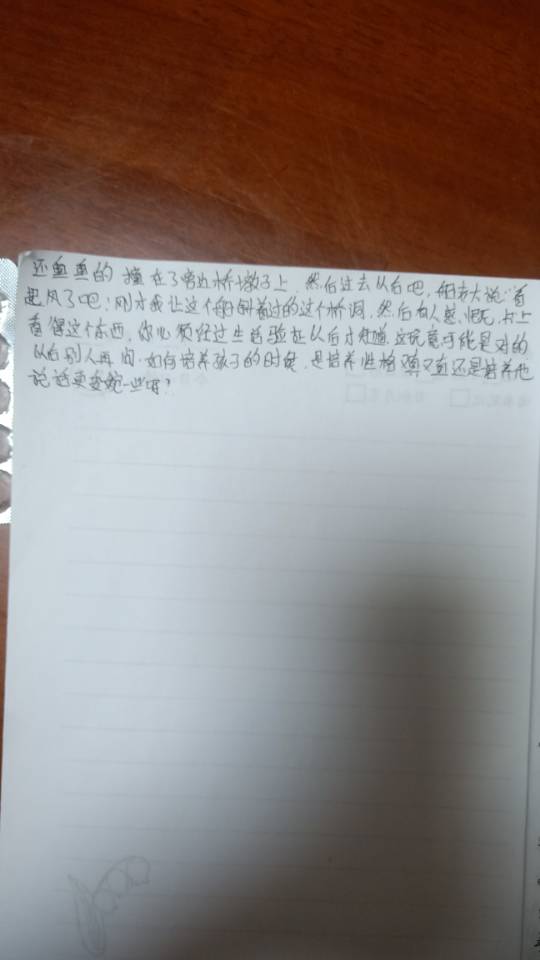 还直直的撞在了旁边桥墩子上，然后过去以后吧，船老大说"看
起风了吧！刚才我让这个船斜着过的这个桥洞，然后有人感慨，书上
看得这个东西，你必须经过生活验证以后才知道，这玩意可能是对的
以后别人再问，如何培养孩子的时候，是培养性格 还是培养他
说话更委婉一些呀？